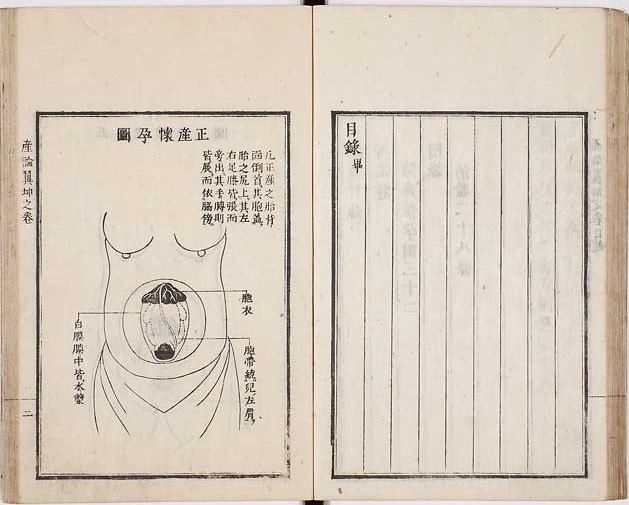 目錄畢
正產懷孕圖
凡正產之胎背
面倒首其胞蓋
胎之尻上其左
右足膝皆張而
旁出其手轉則
皆展而依腦後
胞衣
胞帶繞兒左肩
白膜膜中皆水漿
產論翼坤之卷
二